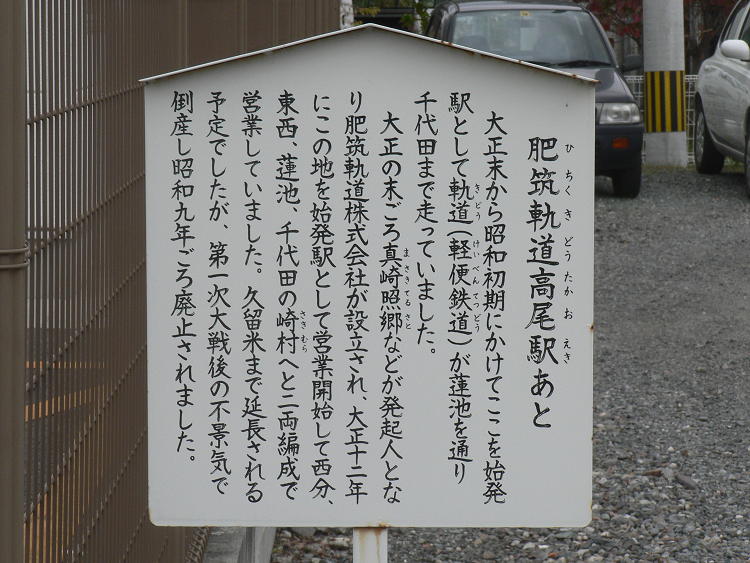 肥筑軌道高尾駅あと
ひちくきどうたかおえき
大正末から昭和初期にかけてここを始発
駅として軌道(軽便鉄道)が蓮池を通り
きどう けいべんてつどう
千代田まで走っていました。
大正の末ごろ真崎照郷などが発起人とな
まさきてるさと
り肥筑軌道株式会社が設立され、大正十二年
にこの地を始発駅として営業開始して西分、
東西、蓮池、千代田の崎村へと二両編成で
さきむら
営業していました。久留米まで延長される
予定でしたが、第一次大戦後の不景気で
倒産し昭和九年ごろ廃止されました。